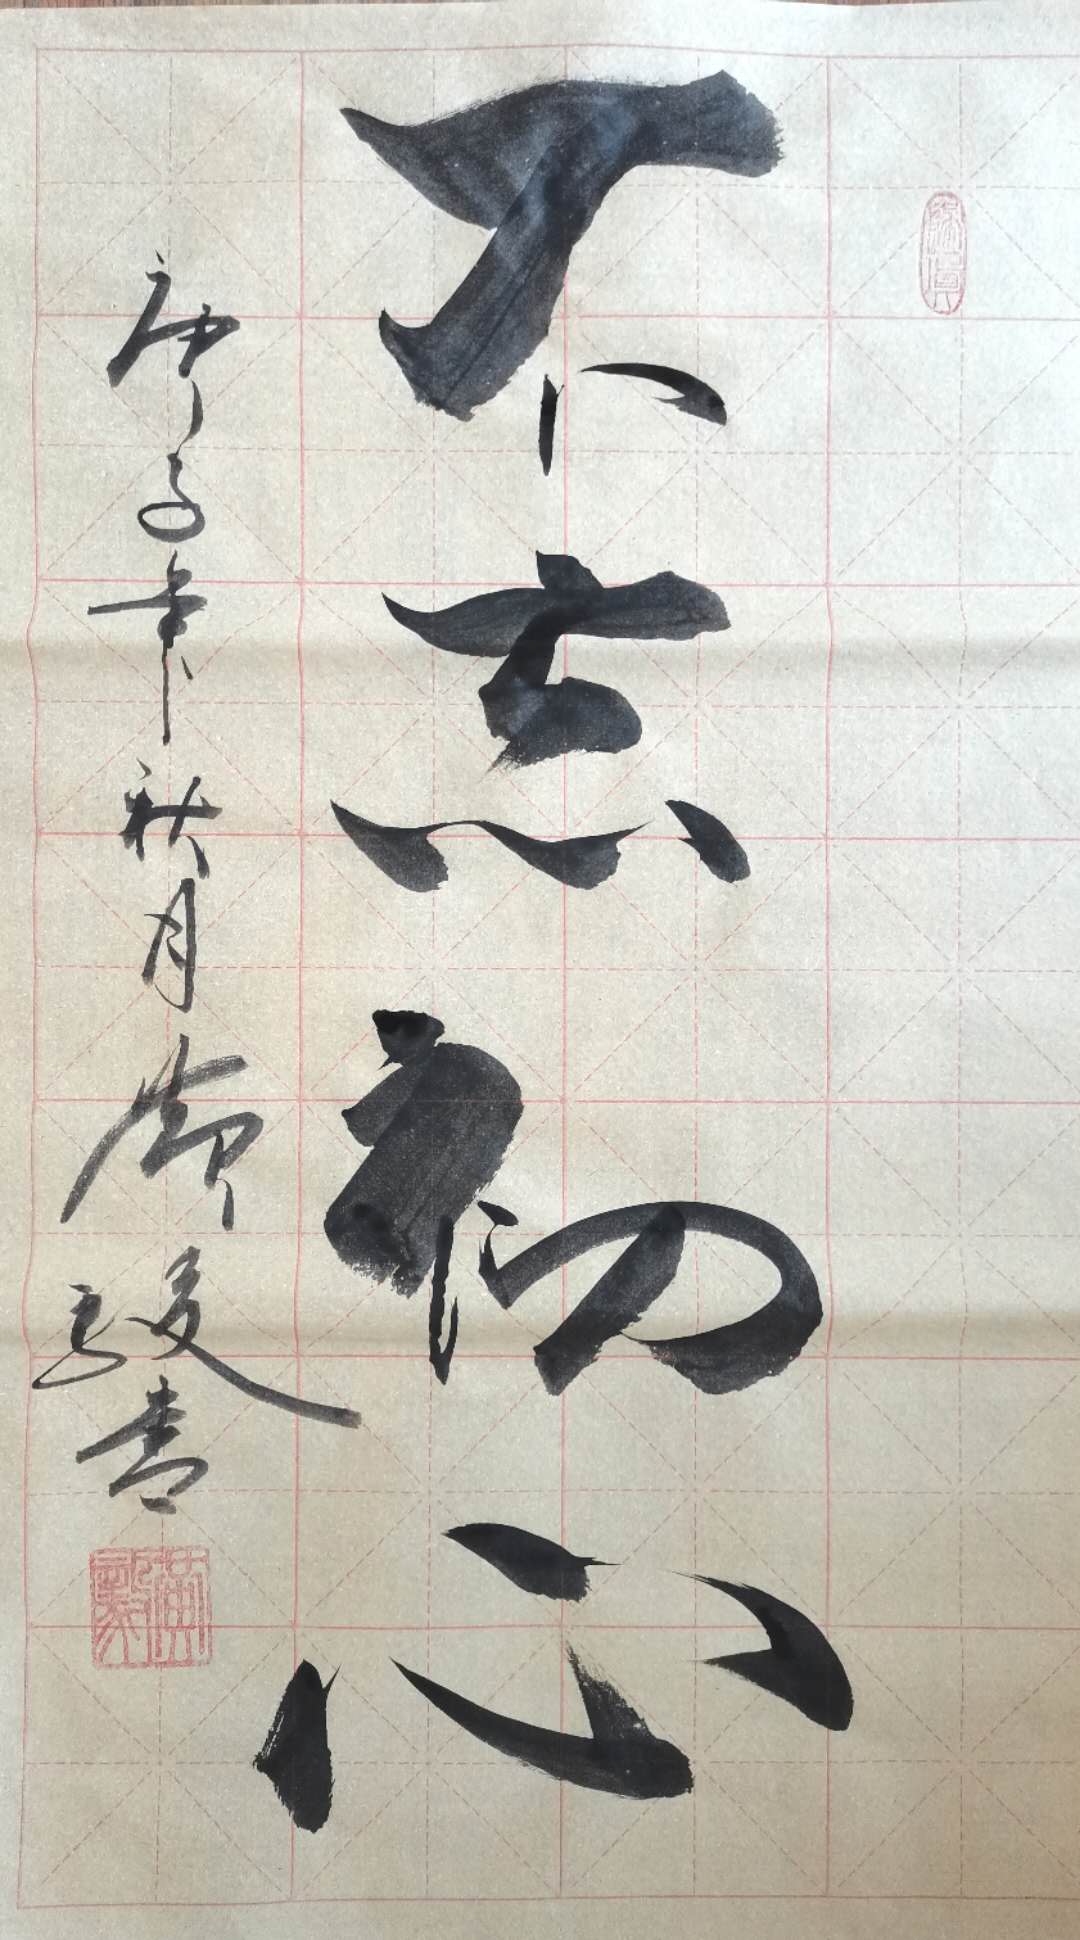 不忘初心
庚子年秋月
书